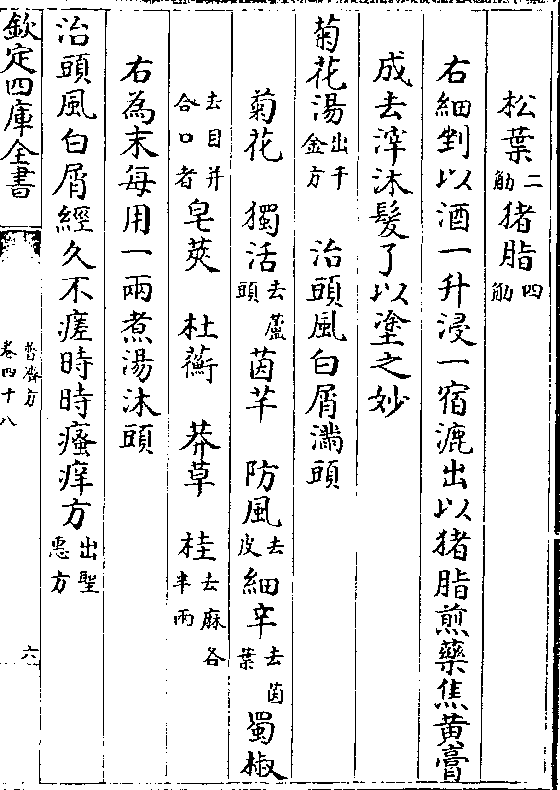 松葉二觔猪脂四觔
右細剉以酒一升浸一宿漉出以猪脂煎藥焦黄膏
成去滓沐髮了以塗之妙
菊花湯出千金方 治頭風白屑滿頭
菊花 獨活去蘆頭 茵芋 防風去皮 細辛去苗葉 蜀椒
去目并合口者 皂莢 杜蘅 莽草 桂去麻各半兩
右為末每用一兩煮湯沐頭
治頭風白屑經久不瘥時時瘙痒方出聖惠方
欽定四庫全書
普濟方
卷四十八
六